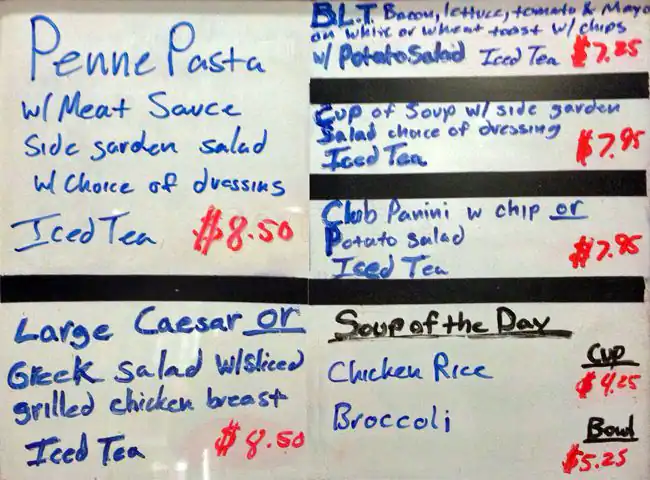 Penne Pasta
w/ Meat Sauce
Side garden salad
w/ choice of dressing
Iced Tea $8.50
Large Caesar or
Greek Salad w/Sliced
grilled chicken breast
Iced Tea $8.50
B.L.T. Bacon, lettuce, tomato & Mayo
on white or wheat toast w/ chips
w/ Potato Salad Iced Tea $7.25
Cup of Soup w/ side garden
Salad choice of dressing
Iced Tea $7.95
Club Panini w chip or
Potato salad
Iced Tea $7.95
Soup of the Day
Cup
Chicken Rice $4.25
Broccoli
Bowl
$5.25